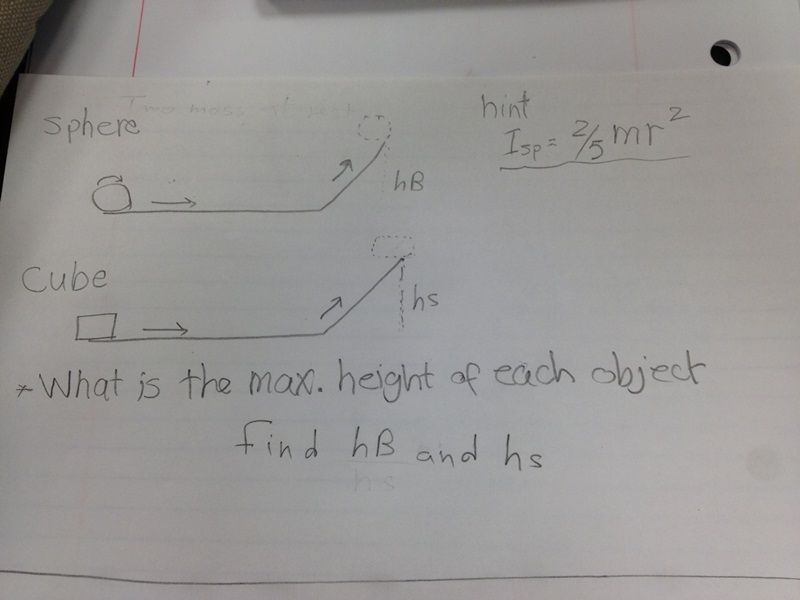 Two mass
hint
Sphere
I sp = 2/5 mr²
hB
Cube
hs
* What is the max. height of each object
find hB and hs
hs